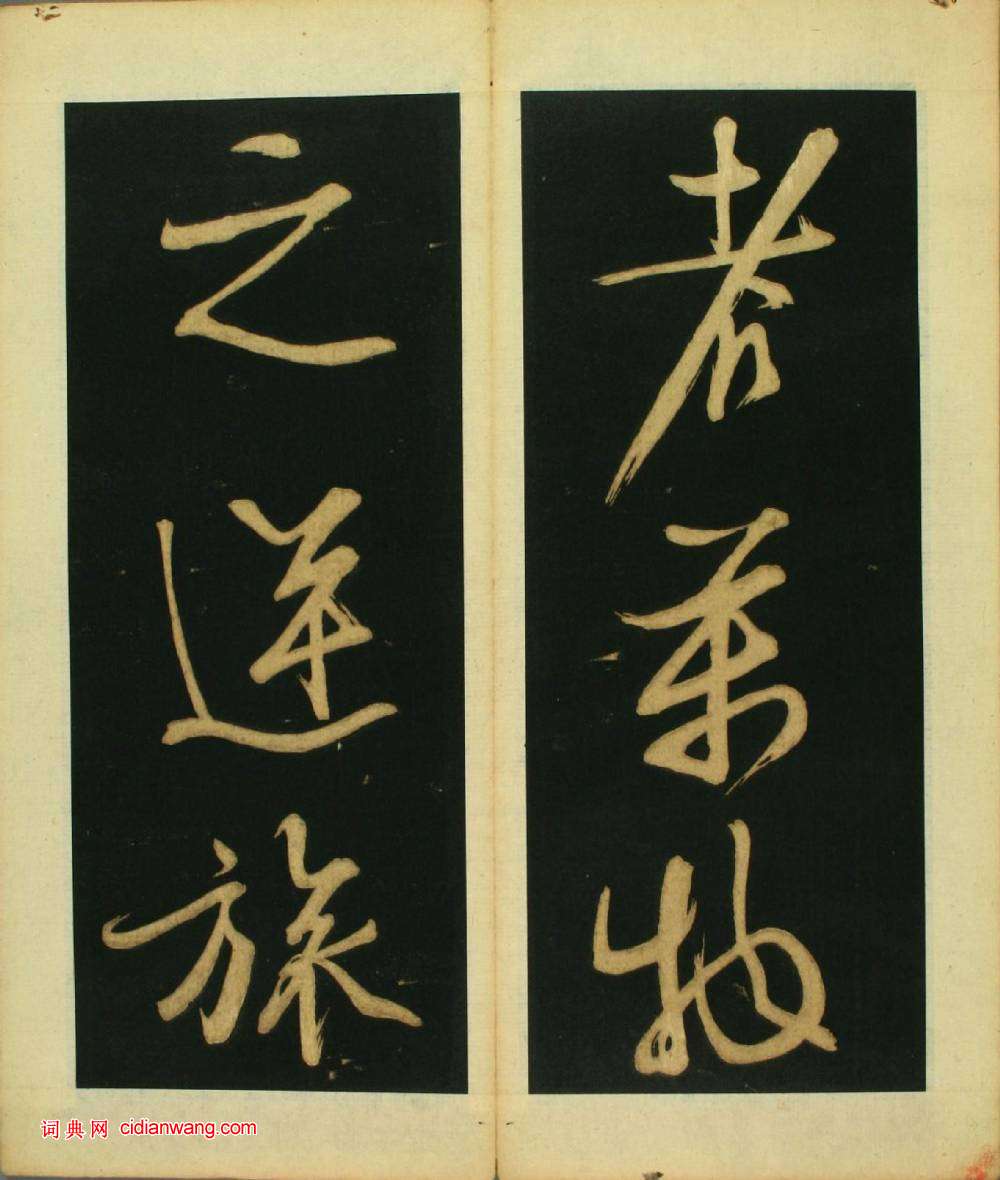 者萬物
之逆旅
词典网 cidianwang.com